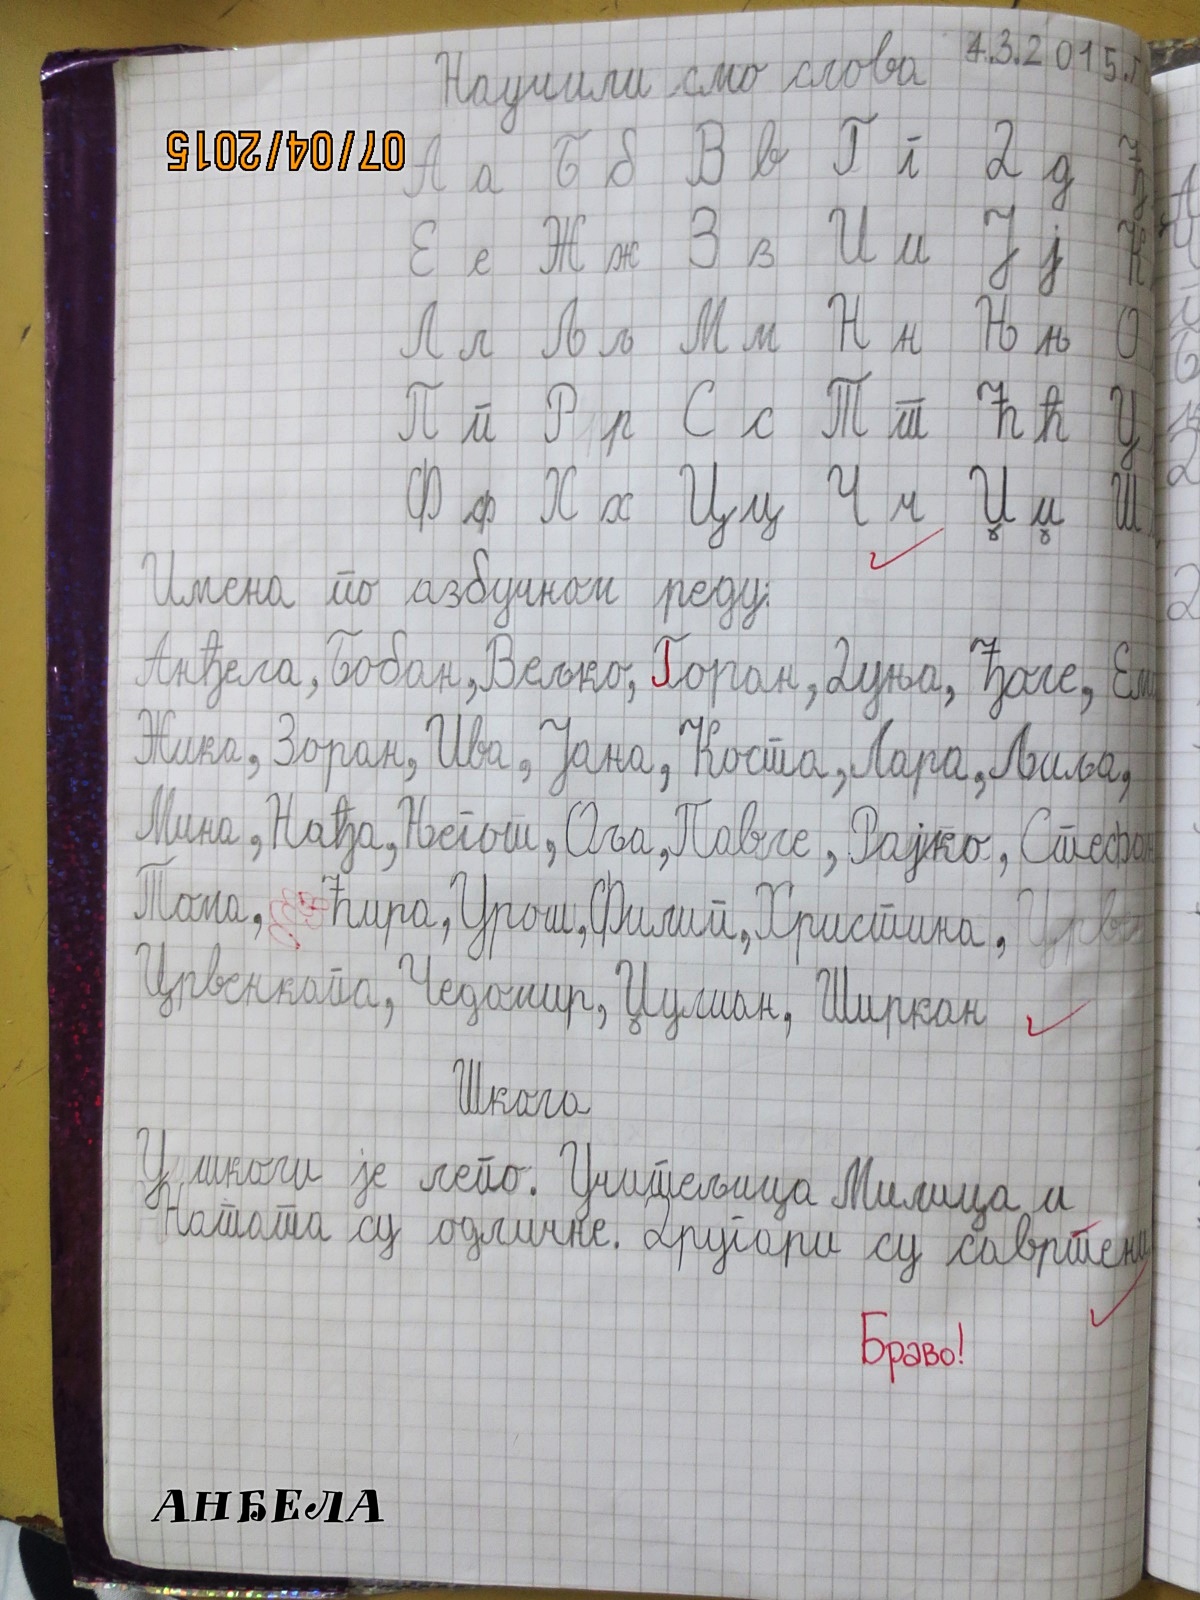 Научили смо слова 4.3.2015.
07/04/2015
А а Б б В в Г г Д д Ђ
Е е Ж ж З з И и Ј ј К
Л л Љ љ М м Н н Њ њ О
П п Р р С с Т т Ћ ћ У
Ф ф Х х Ц ц Ч ч Џ џ Ш
Имена по азбучном реду:
Анђела, Бобан, Вељко, Горан, Дуња, Ђоле,
Жика, Зоран, Ива, Јана, Коста, Лара, Љиља,
Мина, Нађа, Његош, Оља, Павле, Рајко, Стефан
Тома, Ћира, Урош, Филип, Христина,
Црвенкапа, Чедомир, Џулиан, Ширкан
Школа
У школи је лепо. Учитељица Милица и
Наташа су одличне. Другари су савршени
Браво!
АНЂЕЛА